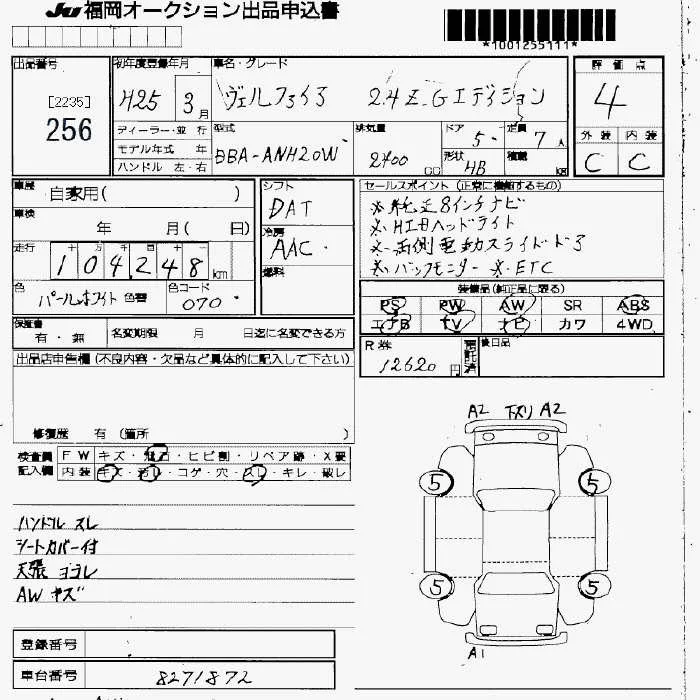 JU 福岡オークション出品申込書
*1001255111*
出品番号 初年度登録年月 車名・グレード 評価点
[2235]
256
H25 3月 ヴェルファイア 2.4Z Gエディション 4
ディーラー・並行 型式 排気量 ドア 定員 外装 内装
モデル年式 年 DBA-ANH20W 2400cc 5 7人 C C
ハンドル 左・右 形状 HB 積載
車歴 自家用( ) シフト セールスポイント (正常に機能するもの)
DAT ※純正8インチナビ
車検 年 月( 日) 冷房 ※HIDヘッドライト
走行 104,248km AAC ※両側電動スライドドア
燃料 ※バックモニター ※ETC
色 パールホワイト 色替 色コード 070
装備品(純正品に限る)
PS PW AW SR ABS
エアB TV ナビ カワ 4WD
保証書 有・無 名変期限 月 日迄に名変できる方
R券 12620円 預託済 後日品
出品店申告欄(不良内容・欠品など具体的に記入して下さい)
修復歴 有 (箇所 )
検査員記入欄 FW キズ・飛石・ヒビ割・リペア跡・X要
内装 キズ・汚レ・コゲ・穴・スレ・キレ・破レ
A2 下スリ A2
5 5
ハンドル スレ
シートカバー付
天張 ヨゴレ
AW キズ
5 5
A1
登録番号
車台番号 8271872